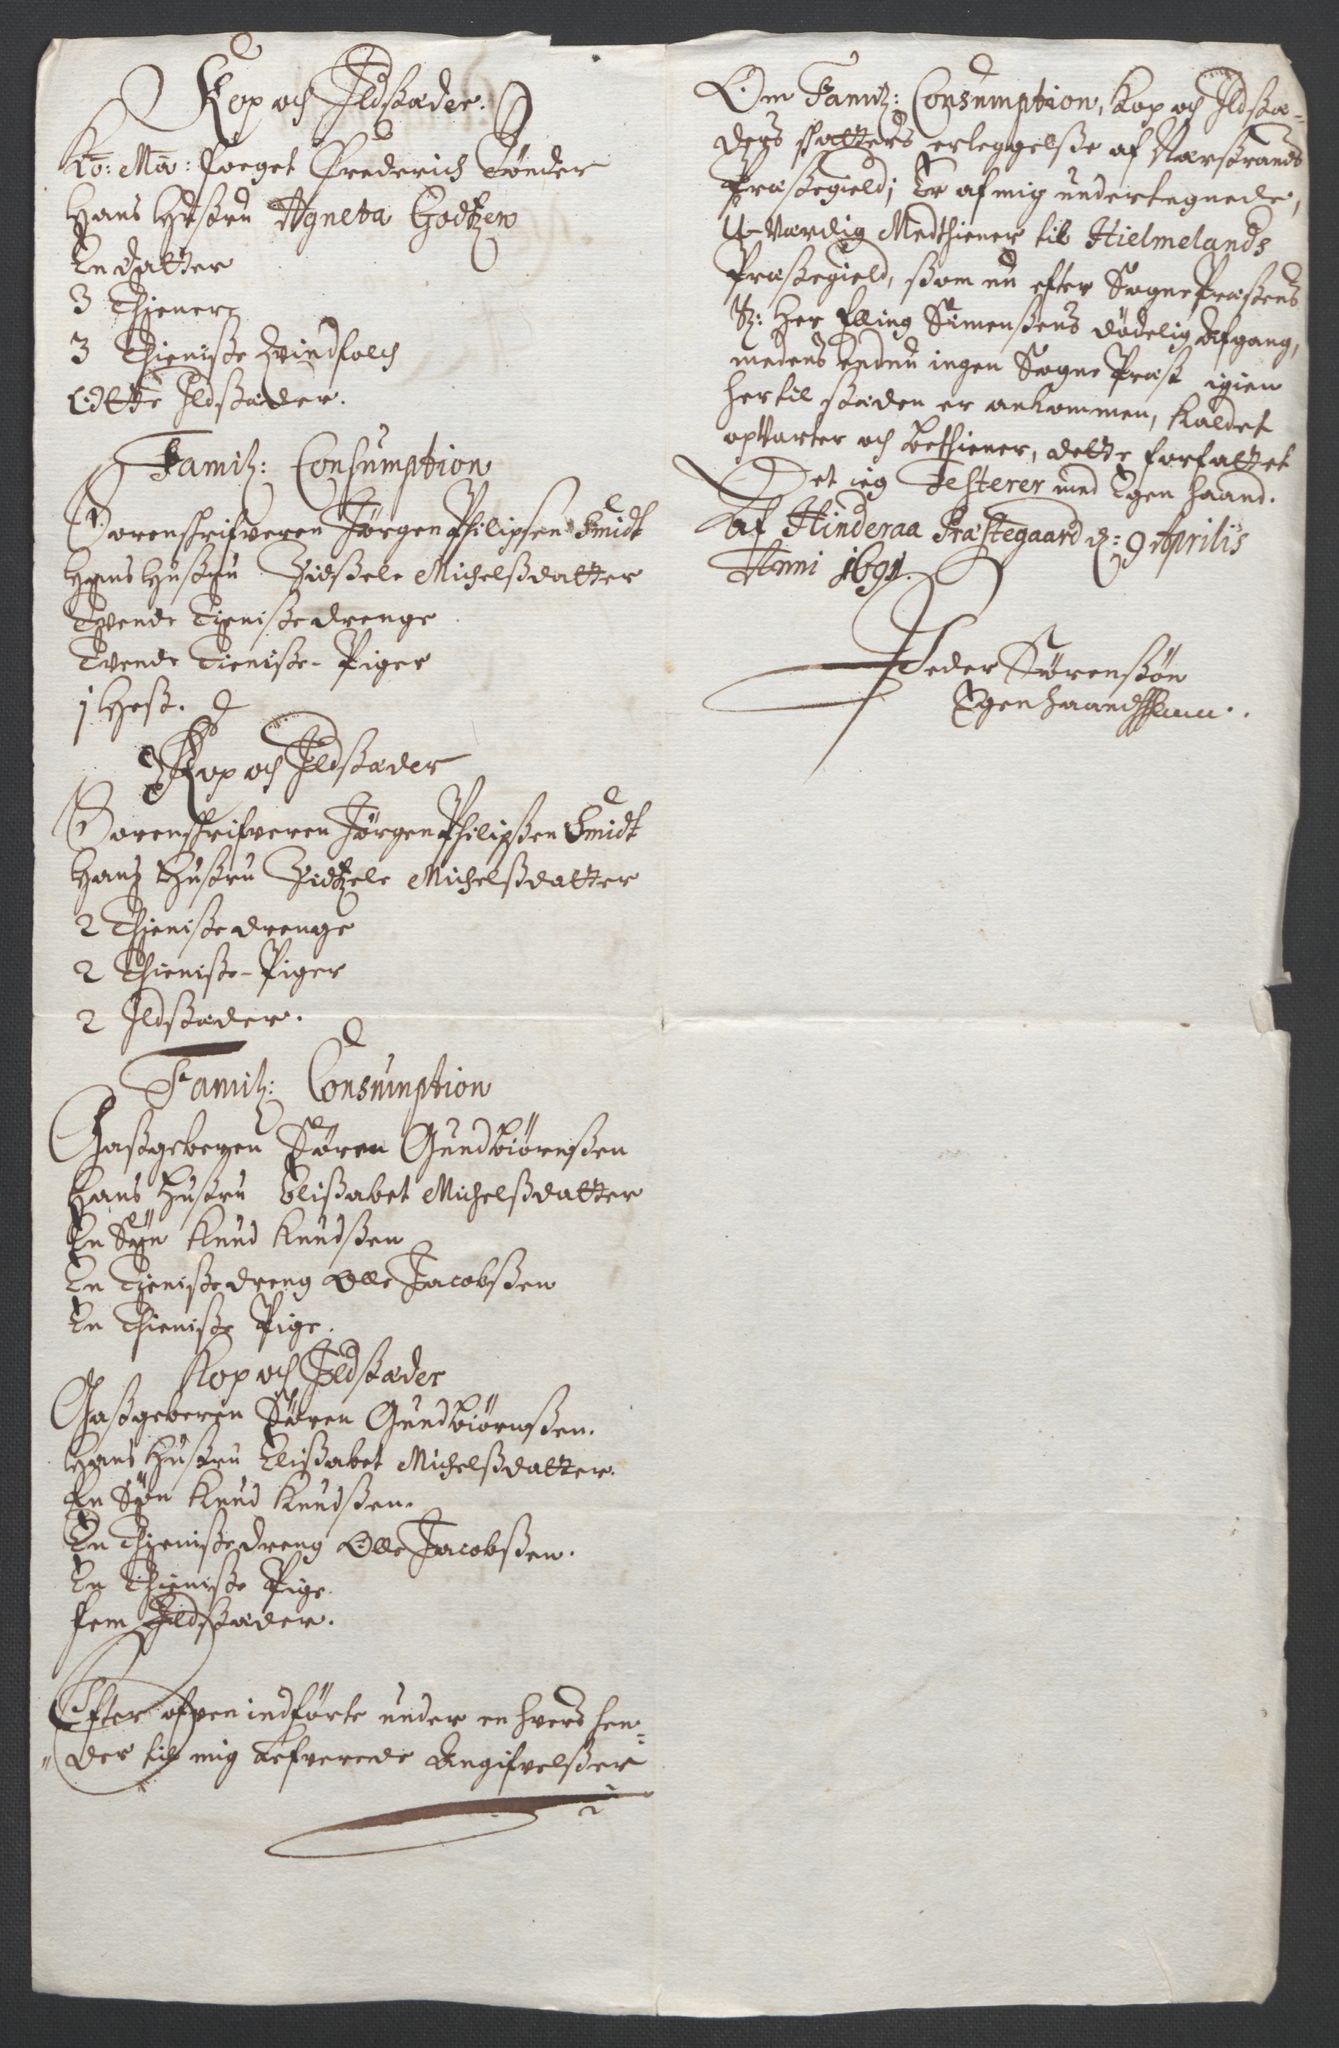 Kop och Ildstæder.
Ko: Ma: foeget Frederich Tønder
Hans Hustru Agneta Godtzen
En datter
3 Thiener
3 Thieniste Qvindfolch
Otte Ildstæder.
Famil: Consumption
Sorenschrifveren Jørgen Philipsen Smidt
Hans Hustru Zidsele Michelsdatter
Tvende Tieniste drenge
Tvende Tieniste-Piger
1 Hest.
Kop och Ildstæder
Sorenschrifveren Jørgen Philipsen Smidt
Hans Hustru Zidtzele Michelsdatter
2 Thieniste drenge
2 Thieniste-Piger
2 Ildstæder.
Famil: Consumption
Gastgeberen Søren Gundbiørnsen
Hans Hustru Elisabet Michelsdatter
En Søn Knud Knudsen
En Tieniste dreng Olle Jacobsen
En Thieniste Pige.
Kop och Ildstæder
Gastgeberen Søren Gundbiørnsen.
Hans Hustru Elisabet Michelsdatter.
En Søn Knud Knudsen.
En Thieniste dreng Olle Jacobsen.
En Thieniste Pige.
fem Ildstæder.
Efter ofven indførte under en hvers hen-
der til mig lefverede Angifvelser
Om Famil: Consumption, Kop och Ildstæ-
ders skatters erleggelse af Nærstrands
Præstegield; Er af mig undertegnede,
U-Værdig Medthiener til Hielmelands
Præstegield, som nu efter Sogne Præstens
S: Her Elling Simensens dødelig Afgang,
medens endnu ingen Sogne Præst igien
her til steden er ankommen, Kaldet
opvarter och bethiener, dette forfattet
Det ieg Testerer med Egen haand.
Af Hinderaa Præstegaard d: 9 Aprilis
Anni 1691.
Peder Sørensøn
Egen haand